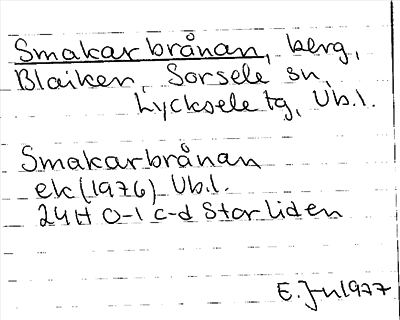 Smakarbrånan, berg,
Blaiken, Sorsele sn,
Lycksele tg, Vb.l.
Smakarbrånan
ek (1976) Vb.l.
24H 0-1 c-d Storliden
E. Jn 1977